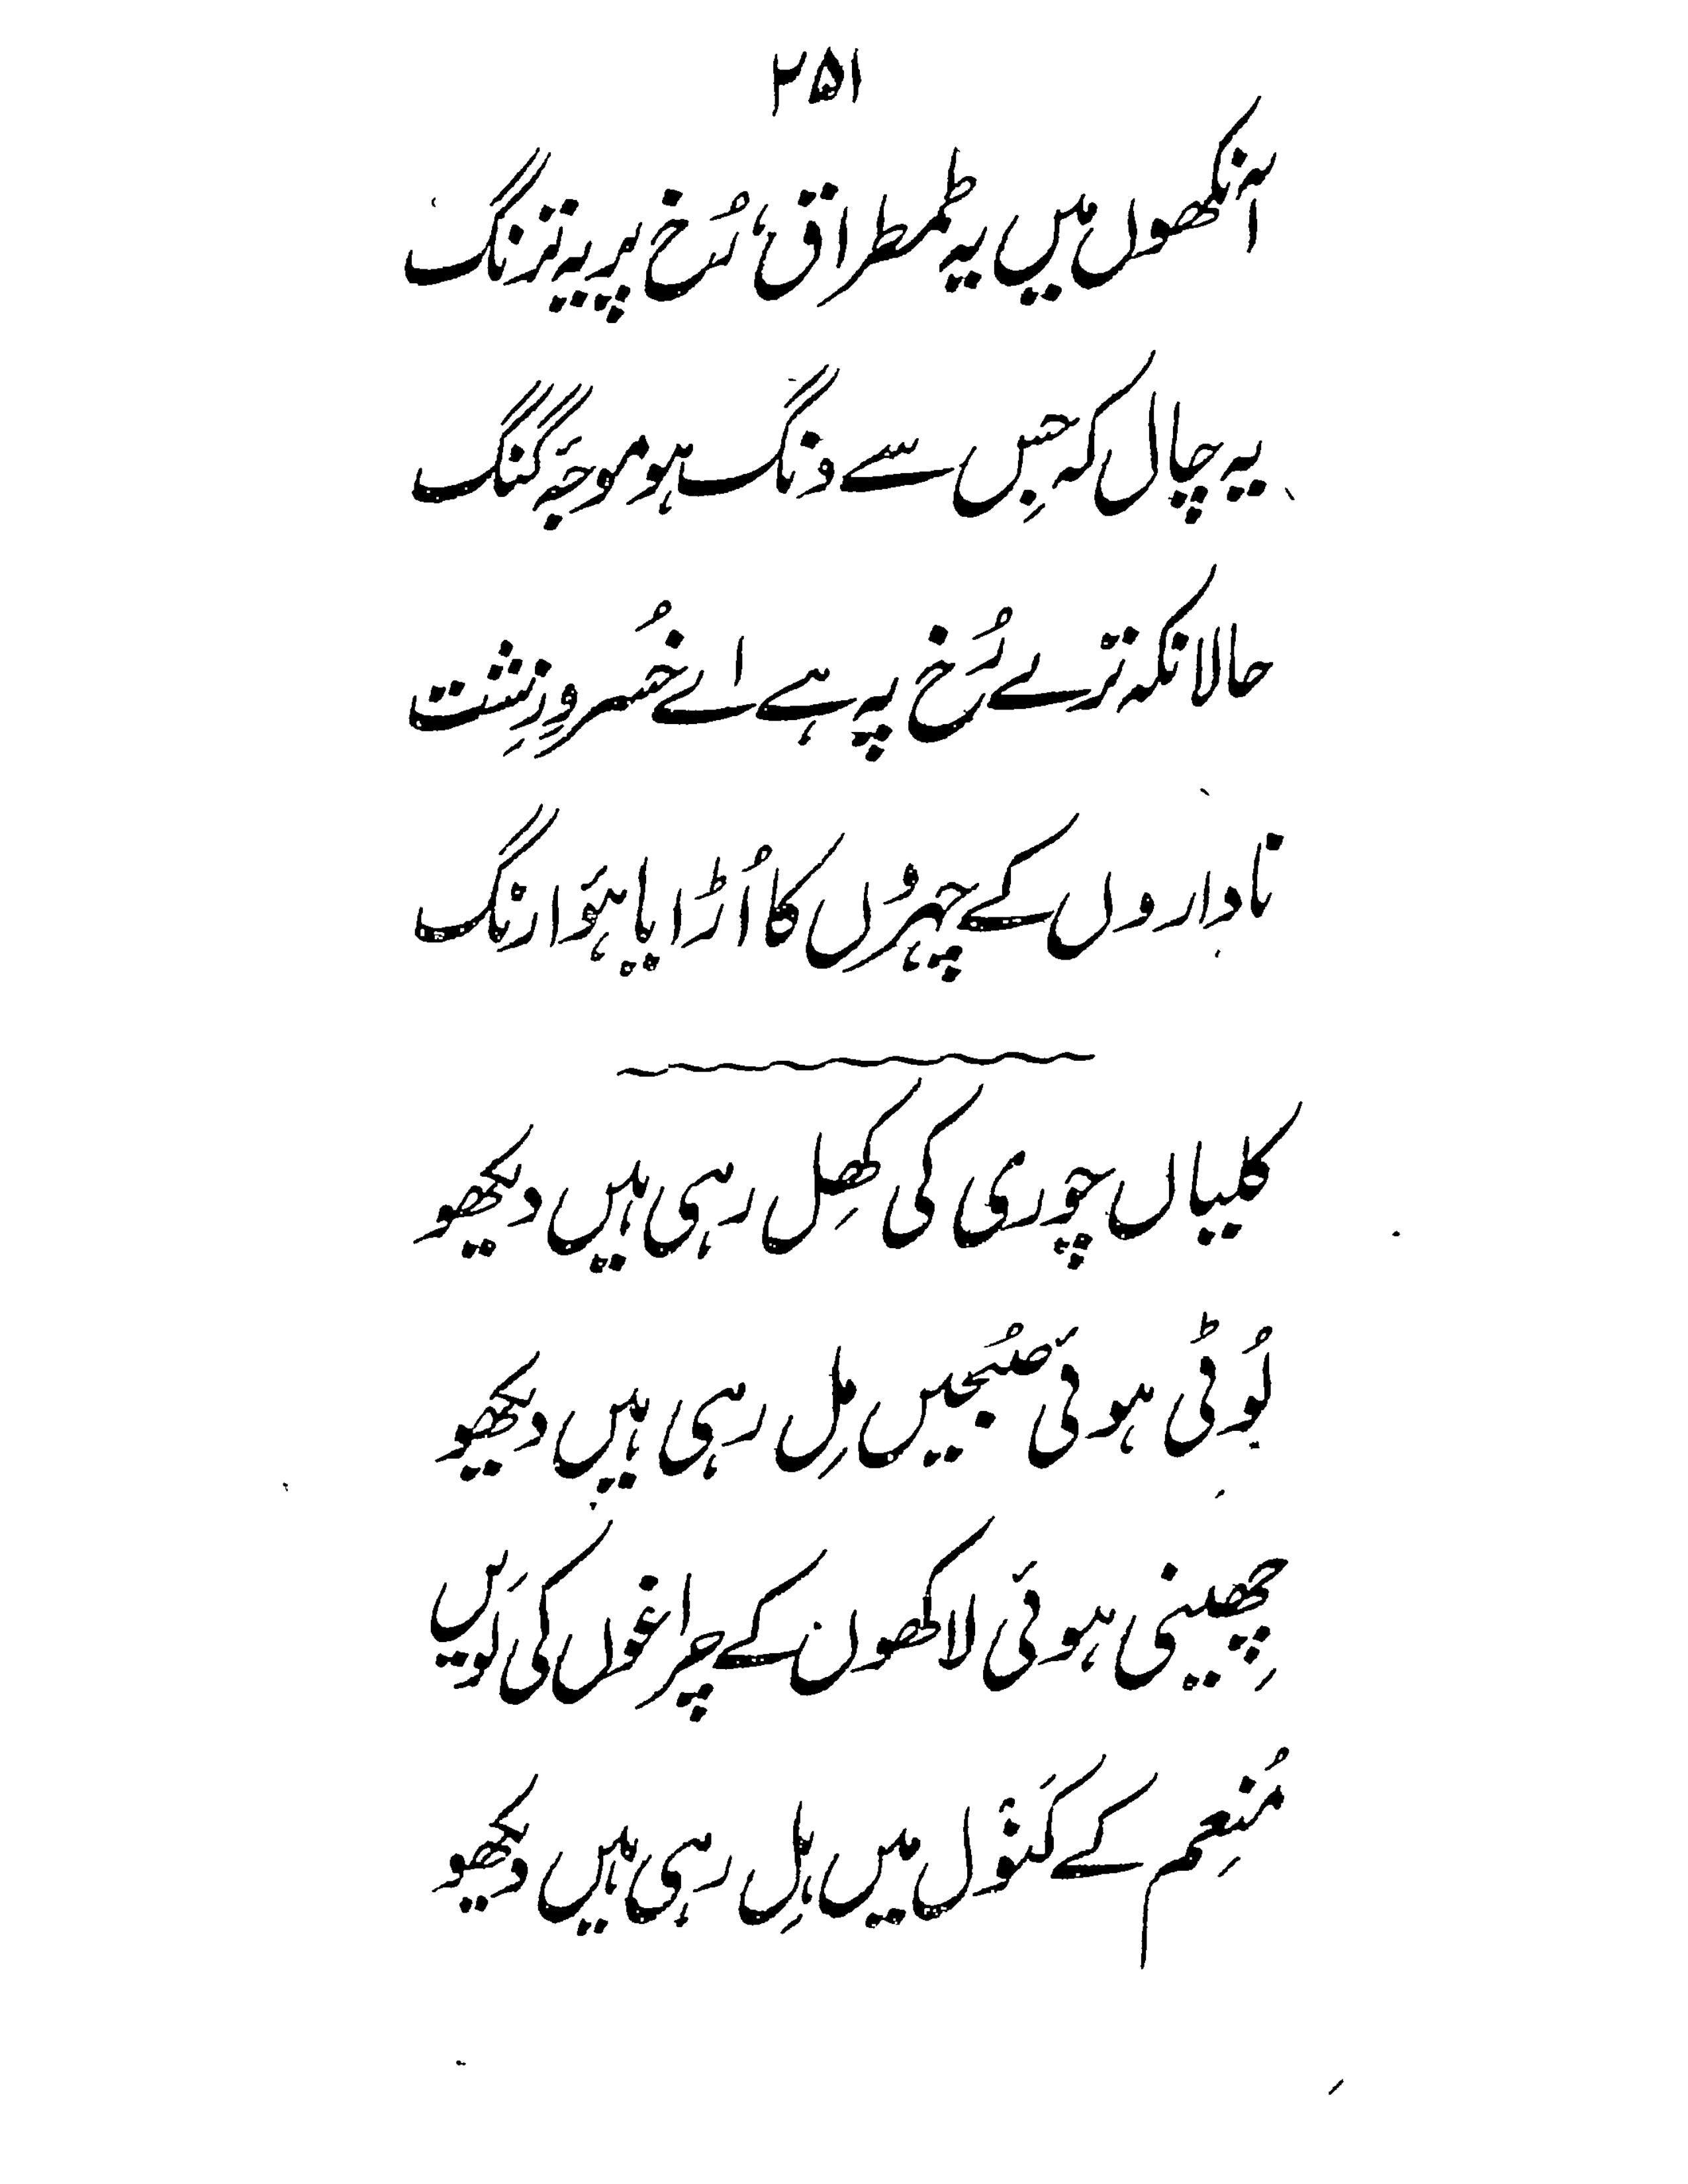 ۲۵۱
آنکھوں میں یہ طمطراق، رُخ پر یہ ترنگ
یہ چال کہ جِس سے دنگ ہو موجۂ گنگ
حالانکہ ترے رُخ پہ ہے اے خُسروِ زِشت
ناداروں کے چہروں کا اُڑایا ہؤا رنگ
کلیاں چوری کی کھِل رہی ہیں دیکھو
لُوٹی ہوئی صُبحیں مِل رہی ہیں دیکھو
چھِینی ہوئی لاکھوں کے چراغوں کی لَویں
مُنعِم کے کَنْوَل میں ہِل رہی ہیں دیکھو